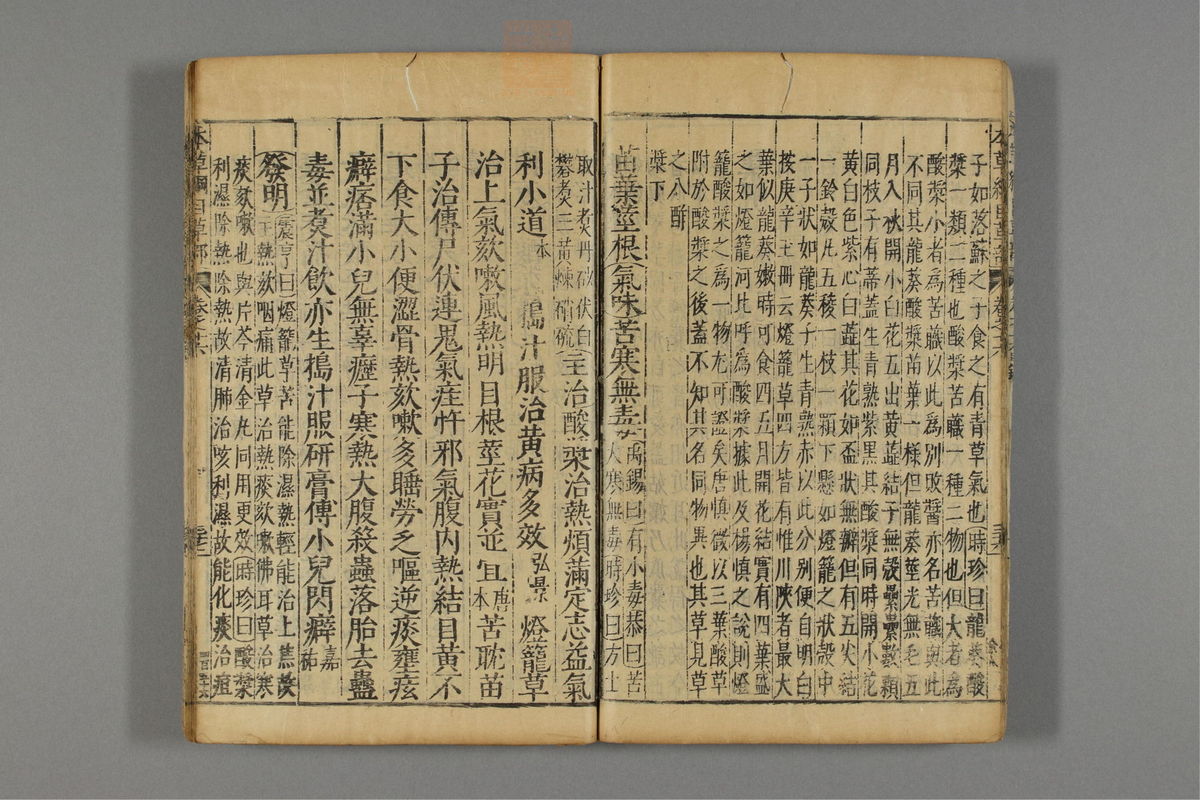 子如落蘇之子食之有青草氣也時珍曰龍葵酸
漿一類二種也酸漿苦蘵一種二物也但大者為
酸漿小者為苦蘵以此爲別敗醬亦名苦蘵與此
不同其龍葵酸漿苗葉一樣但龍葵莖光無毛五
月入秋開小白花五出黃蕋結子無殼纍纍數顆
同枝子有蒂蓋生青熟紫黑其酸漿同時開小花
黃白色紫心白蕋其花如盃狀無瓣但有五尖結
一鈴殼凡五稜一枝一顆下懸如燈籠之狀殼中
一子狀如龍葵子生青熟赤以此分別便自明白
按庚辛玉冊云燈籠草四方皆有惟川陝者最大
葉似龍葵嫩時可食四五月開花結實有四葉盛
之如燈籠河北呼爲酸漿據此及楊慎之說則燈
籠酸漿之爲一物尤可證矣唐慎微以三葉酸草
附於酸漿之後蓋不知其名同物異也其草見草
之八酢
漿下
苗葉莖根氣味苦寒無毒
禹錫曰有小毒恭曰苦
大寒無毒時珍曰方士
取汁煮丹砂伏白
礬煮三黃煉硝硫
主治酸漿治熱煩滿定志益氣
利小道本 搗汁服治黃病多效弘景 燈籠草
治上氣欬嗽風熱明目根莖花實並宜唐本苦耽苗
子治傳尸伏連鬼氣疰忤邪氣腹内熱結目黃不
下食大小便澀骨熱欬嗽多睡勞乏嘔逆痰壅痃
癖痞滿小兒無辜癧子寒熱大腹殺蟲落胎去蠱
毒並煮汁飲亦生搗汁服研膏傅小兒閃癖嘉祐
發明
震亨曰燈籠草苦能除濕熱輕能治上焦故
主熱欬咽痛此草治熱痰欬嗽佛耳草治寒
痰欬嗽也與片芩清金丸同用更效時珍曰酸漿
利濕除熱除熱故清肺治咳利濕故能化痰治疸
本草綱目草部 卷之十六 三十二